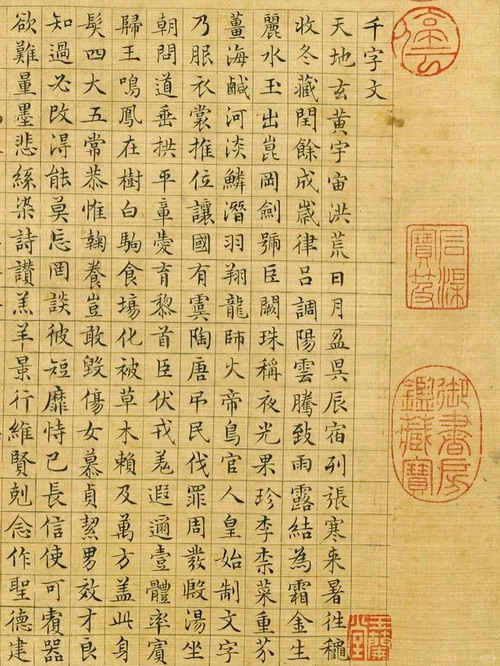 停雲
石渠寶笈
御書房鑑藏寶
玉蘭堂
千字文
天地玄黃宇宙洪荒日月盈昃辰宿列張寒来暑往穐
收冬藏閏餘成歲律呂調陽雲騰致雨露結為霜金生
麗水玉出崑岡劍號巨闕珠稱夜光果珍李柰菜重芥
薑海鹹河淡鱗潛羽翔龍師火帝鳥官人皇始制文字
乃服衣裳推位讓國有虞陶唐吊民伐罪周發殷湯坐
朝問道垂拱平章愛育黎首臣伏戎羌遐邇壹體率賓
歸王鳴鳳在樹白駒食場化被草木賴及萬方盖此身
髮四大五常恭惟鞠養豈敢毀傷女慕貞絜男效才良
知過必改得能莫忘罔談彼短靡恃己長信使可覆器
欲難量墨悲絲染詩讚羔羊景行維賢剋念作聖德建